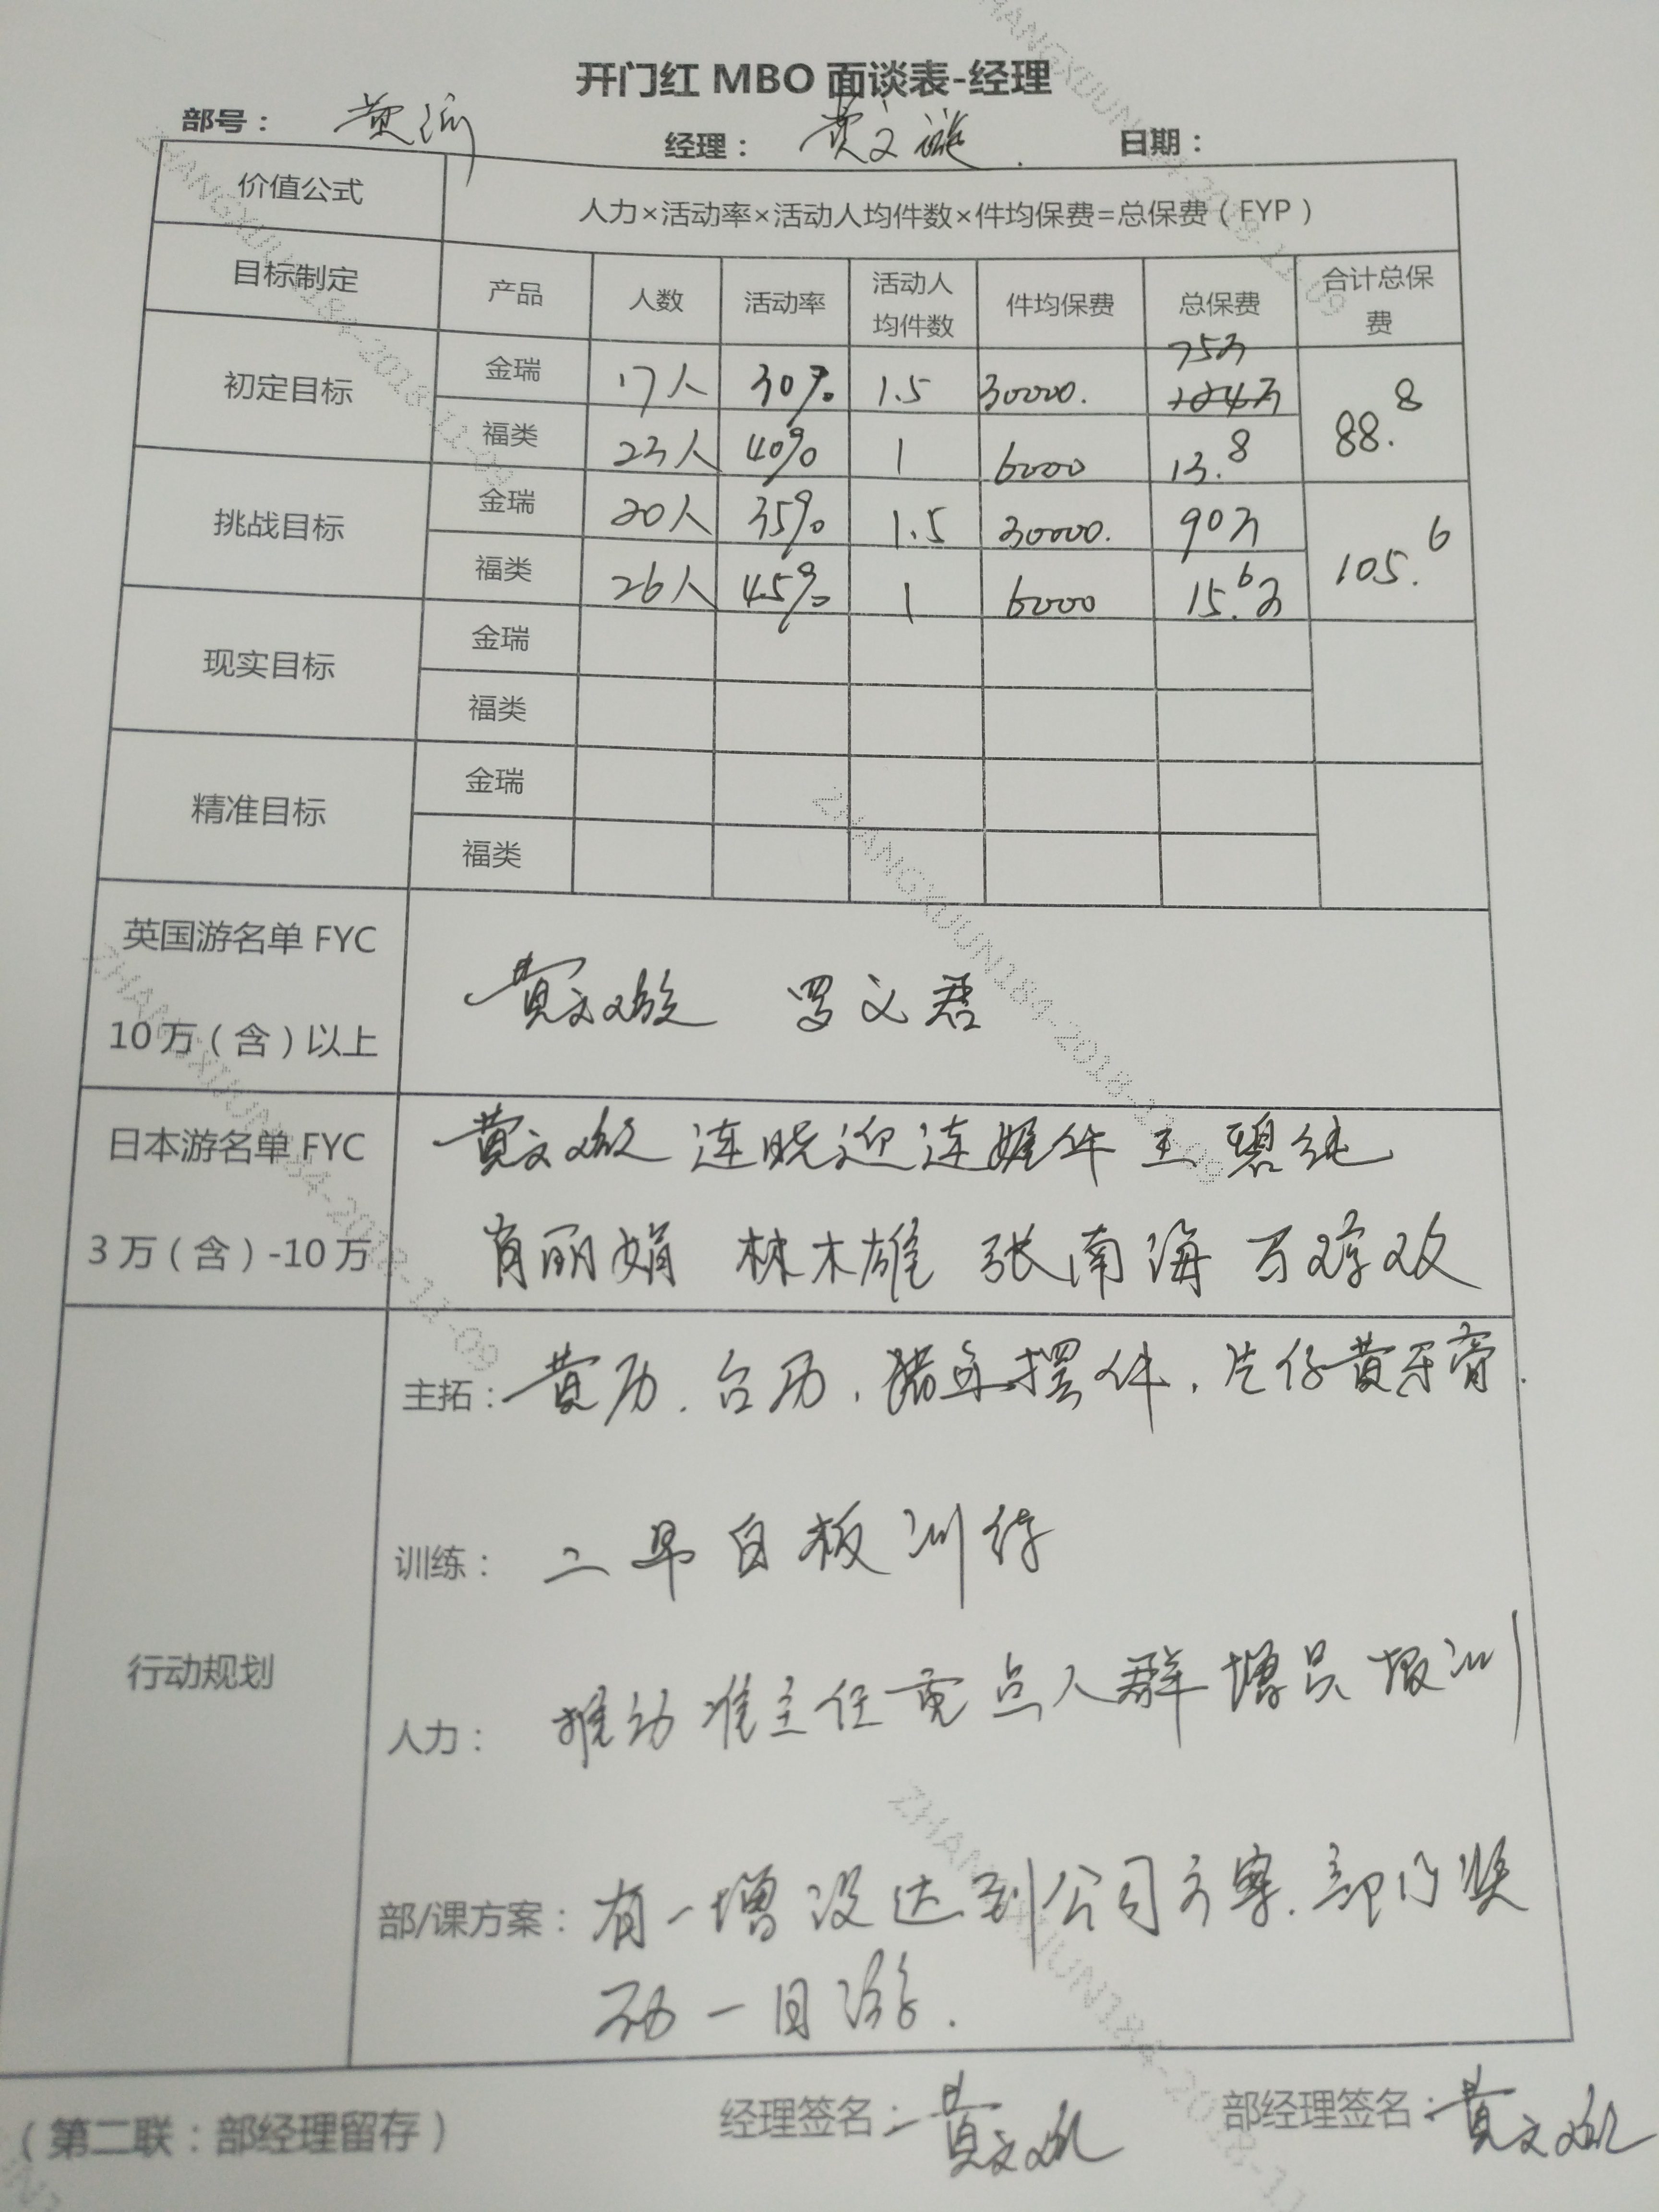 开门红 MBO 面谈表-经理
部号： 黄 经理： 黄文 日期：
价值公式 人力×活动率×活动人均件数×件均保费=总保费（FYP）
目标制定 产品 人数 活动率 活动人均件数 件均保费 总保费 合计总保费
初定目标 金瑞 17人 30% 1.5 30000. 75万 88.8
福类 23人 40% 1 6000 13.8
挑战目标 金瑞 20人 35% 1.5 30000. 90万 105.6
福类 26人 45% 1 6000 15.6万
现实目标 金瑞
福类
精准目标 金瑞
福类
英国游名单 FYC
10万（含）以上 黄文 罗文君
日本游名单 FYC 黄文 连晓迎 连 件 王碧纯
3万（含）-10万 肖丽娟 林木雄 张南海
行动规划
主拓：黄历.台历.猪年摆件.片仔黄牙膏.
训练： 二早白板训练
人力： 推动准主任重点人群增员报训
部/课方案：有一增没达到公司方案.部门奖
一日游.
（第二联：部经理留存） 经理签名：黄文 部经理签名：黄文
ZHANGXIJUN184-2018-11-09
ZHANGXIJUN184-2018-11-09
ZHANGXIJUN184-2018-11-09
ZHANGXIJUN184-2018-11-09
ZHANGXIJUN184-2018-11